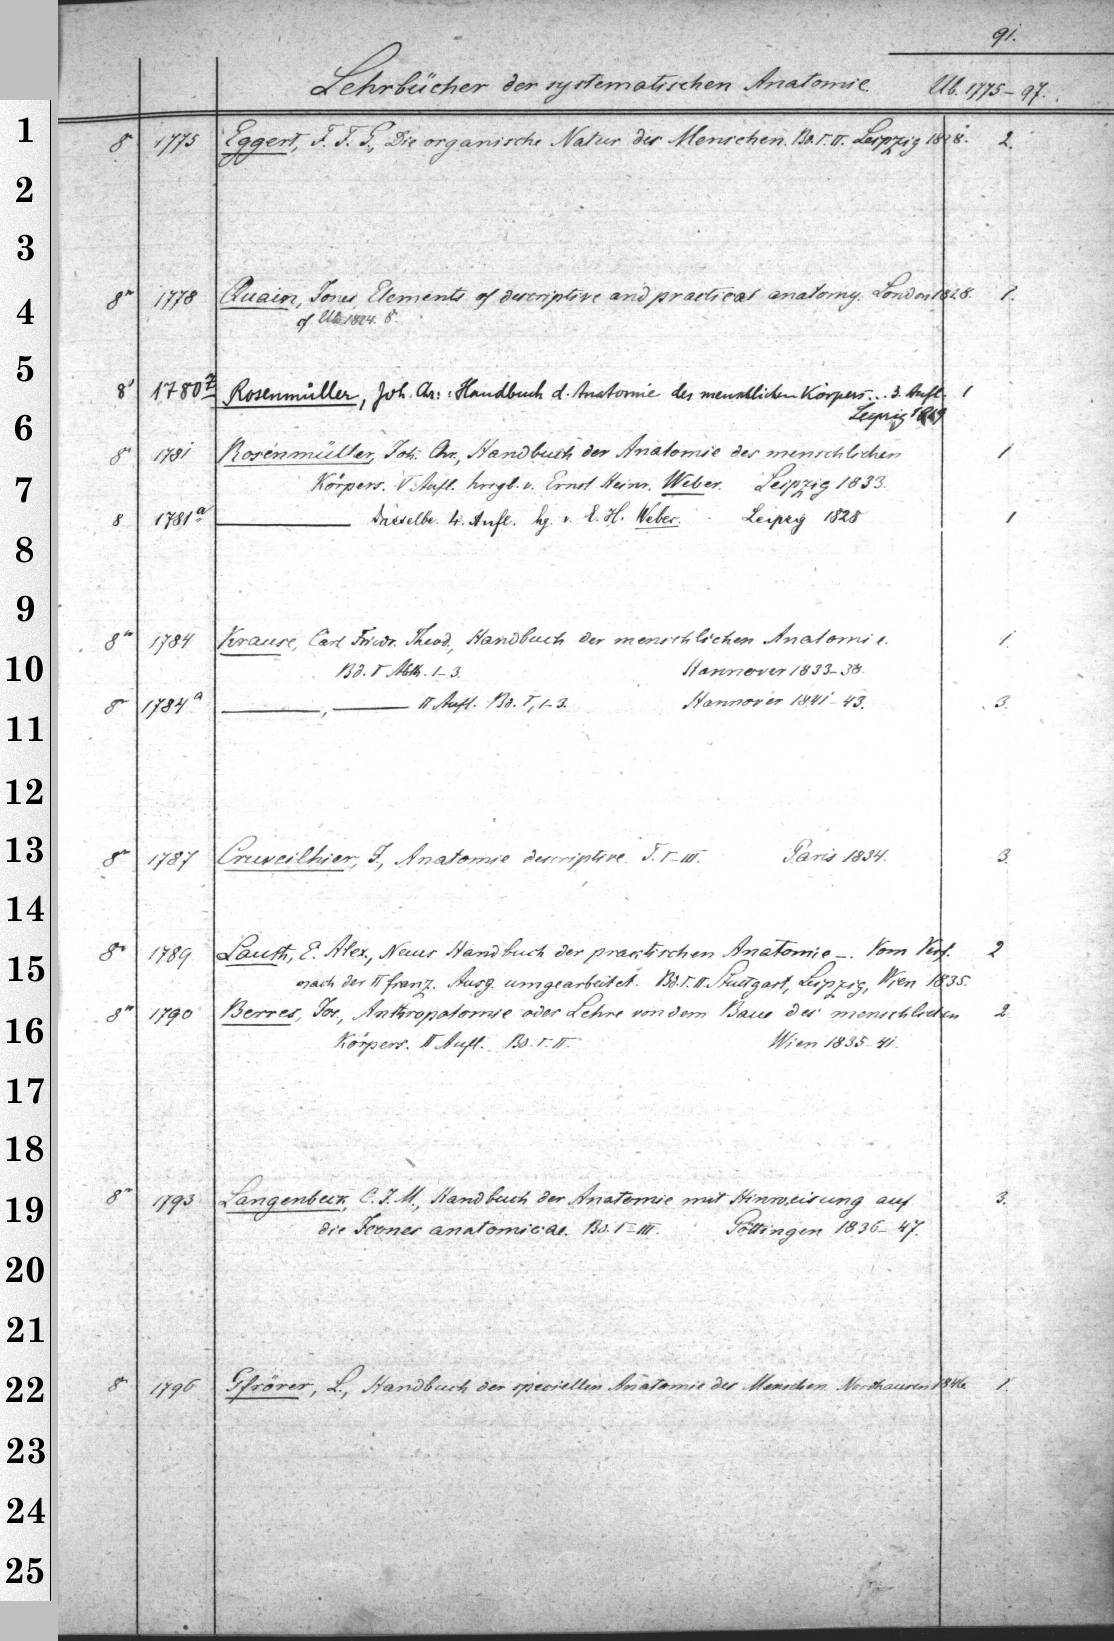 91.
Lehrbücher der systematischen Anatomie. Ub. 1775–97.
1 8° 1775 Eggert, F. F. G., Die organische Natur des Menschen. Bd. I. II. Leipzig 1828. 2.
2
3
8° 1778 Quain, Jones, Elements of descriptive and practical anatomy. London 1828. 1.
4 cf Ub. 1824. 8°.
5
8° 1780 Rosenmüller, Joh. Chr.: Handbuch d. Anatomie des menschlichen Körpers... 3. Aufl. 1
6 Leipzig 1819
8° 1781 Rosenmüller, Joh. Chr., Handbuch der Anatomie des menschlichen 1
7 Körpers. V Aufl. hrsgb. v. Ernst Heinr. Weber. Leipzig 1833.
8 1781a Dasselbe. 4. Aufl. hg. v. E. H. Weber. Leipzig 1828 1
8
9
8° 1784 Krause, Carl Friedr. Theod., Handbuch der menschlichen Anatomie. 1.
10 Bd. I Abth. 1–3. Hannover 1833–38.
8° 1784a ——, —— II Aufl. Bd. I, 1–3. Hannover 1841–43. 3.
11
12
13 8° 1787 Cruveilhier, J., Anatomie descriptive. T. I–III. Paris 1834. 3.
14
8° 1789 Lauth, E. Alex., Neues Handbuch der practischen Anatomie –. Vom Verf. 2
15 nach der II franz. Ausg. umgearbeitet. Bd. I. II. Stuttgart, Leipzig, Wien 1835.
8° 1790 Berres, Jos., Anthropotomie oder Lehre von dem Baue des menschlichen 2
16 Körpers. II Aufl. Bd. I. II. Wien 1835–41.
17
18
8° 1793 Langenbeck, C. J. M., Handbuch der Anatomie mit Hinweisung auf 3.
19 die Icones anatomicae. Bd. I–III. Göttingen 1836–47.
20
21
22 8° 1796 Gfrörer, L., Handbuch der speciellen Anatomie des Menschen. Nordhausen 1846. 1.
23
24
25